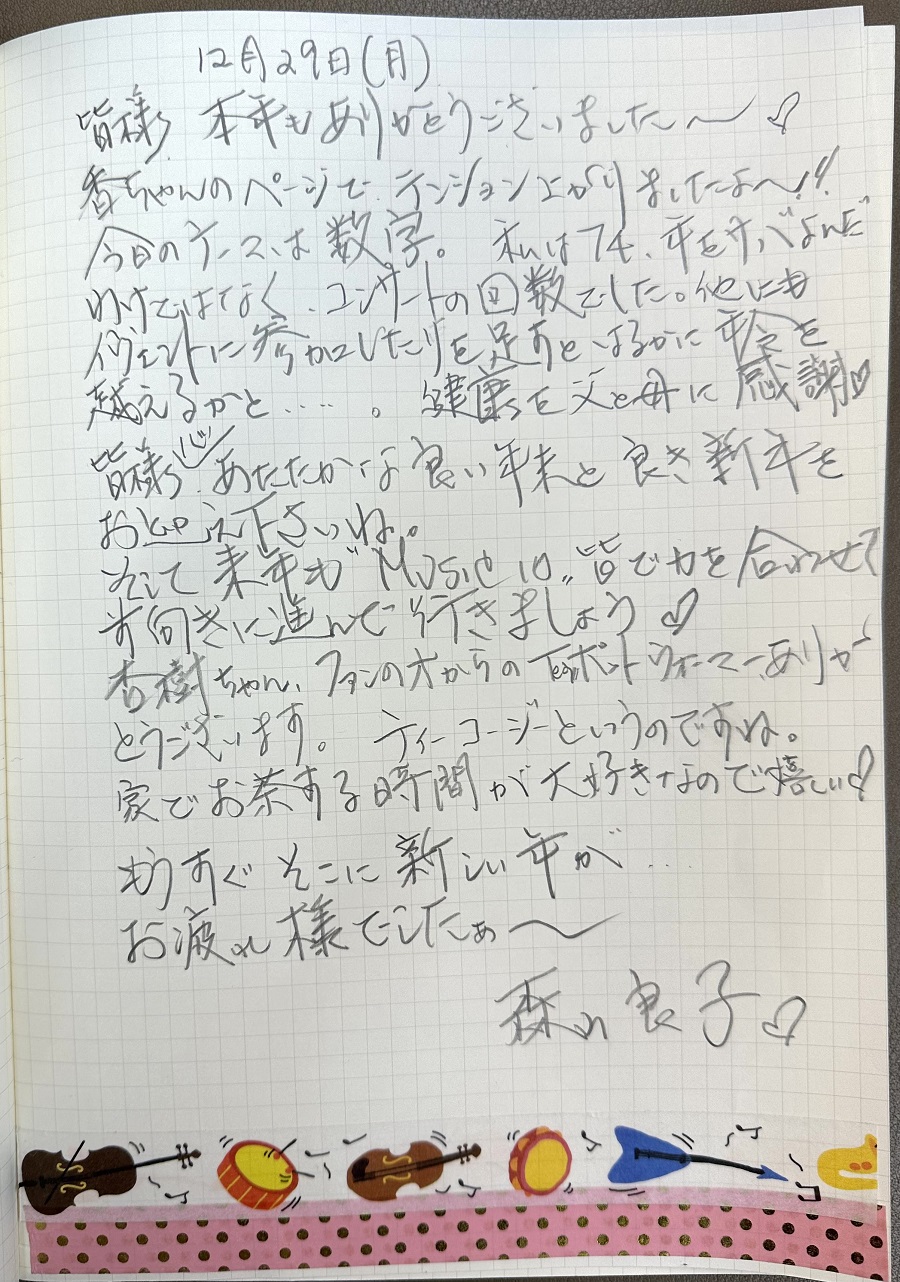 12月29日(月)
皆様 本年もありがとうございました〜♡
香ちゃんのページで テンション上がりましたよ〜!!
今日のケースは数字。 私は74、年をサバよんだ
わけではなく、コンサートの回数でした。他にも
イヴェントに参加したりを足すと、はるかに年令を
越えるかと‥‥。 健康を父と母に感謝♡
皆様 あたたかな良い年末と良き新年を
お迎え下さいね。
そして来年も"Music 10" 皆で力を合わせて
前向きに進んで行きましょう♡
杏樹ちゃん、ファンの方からの Teaポットウォーマーありが
とうございます。 ティーコージーというのですね。
家でお茶する時間が大好きなので嬉しい♡
もうすぐ そこに新しい年が‥‥
お疲れ様でしたぁ〜
森山良子♡